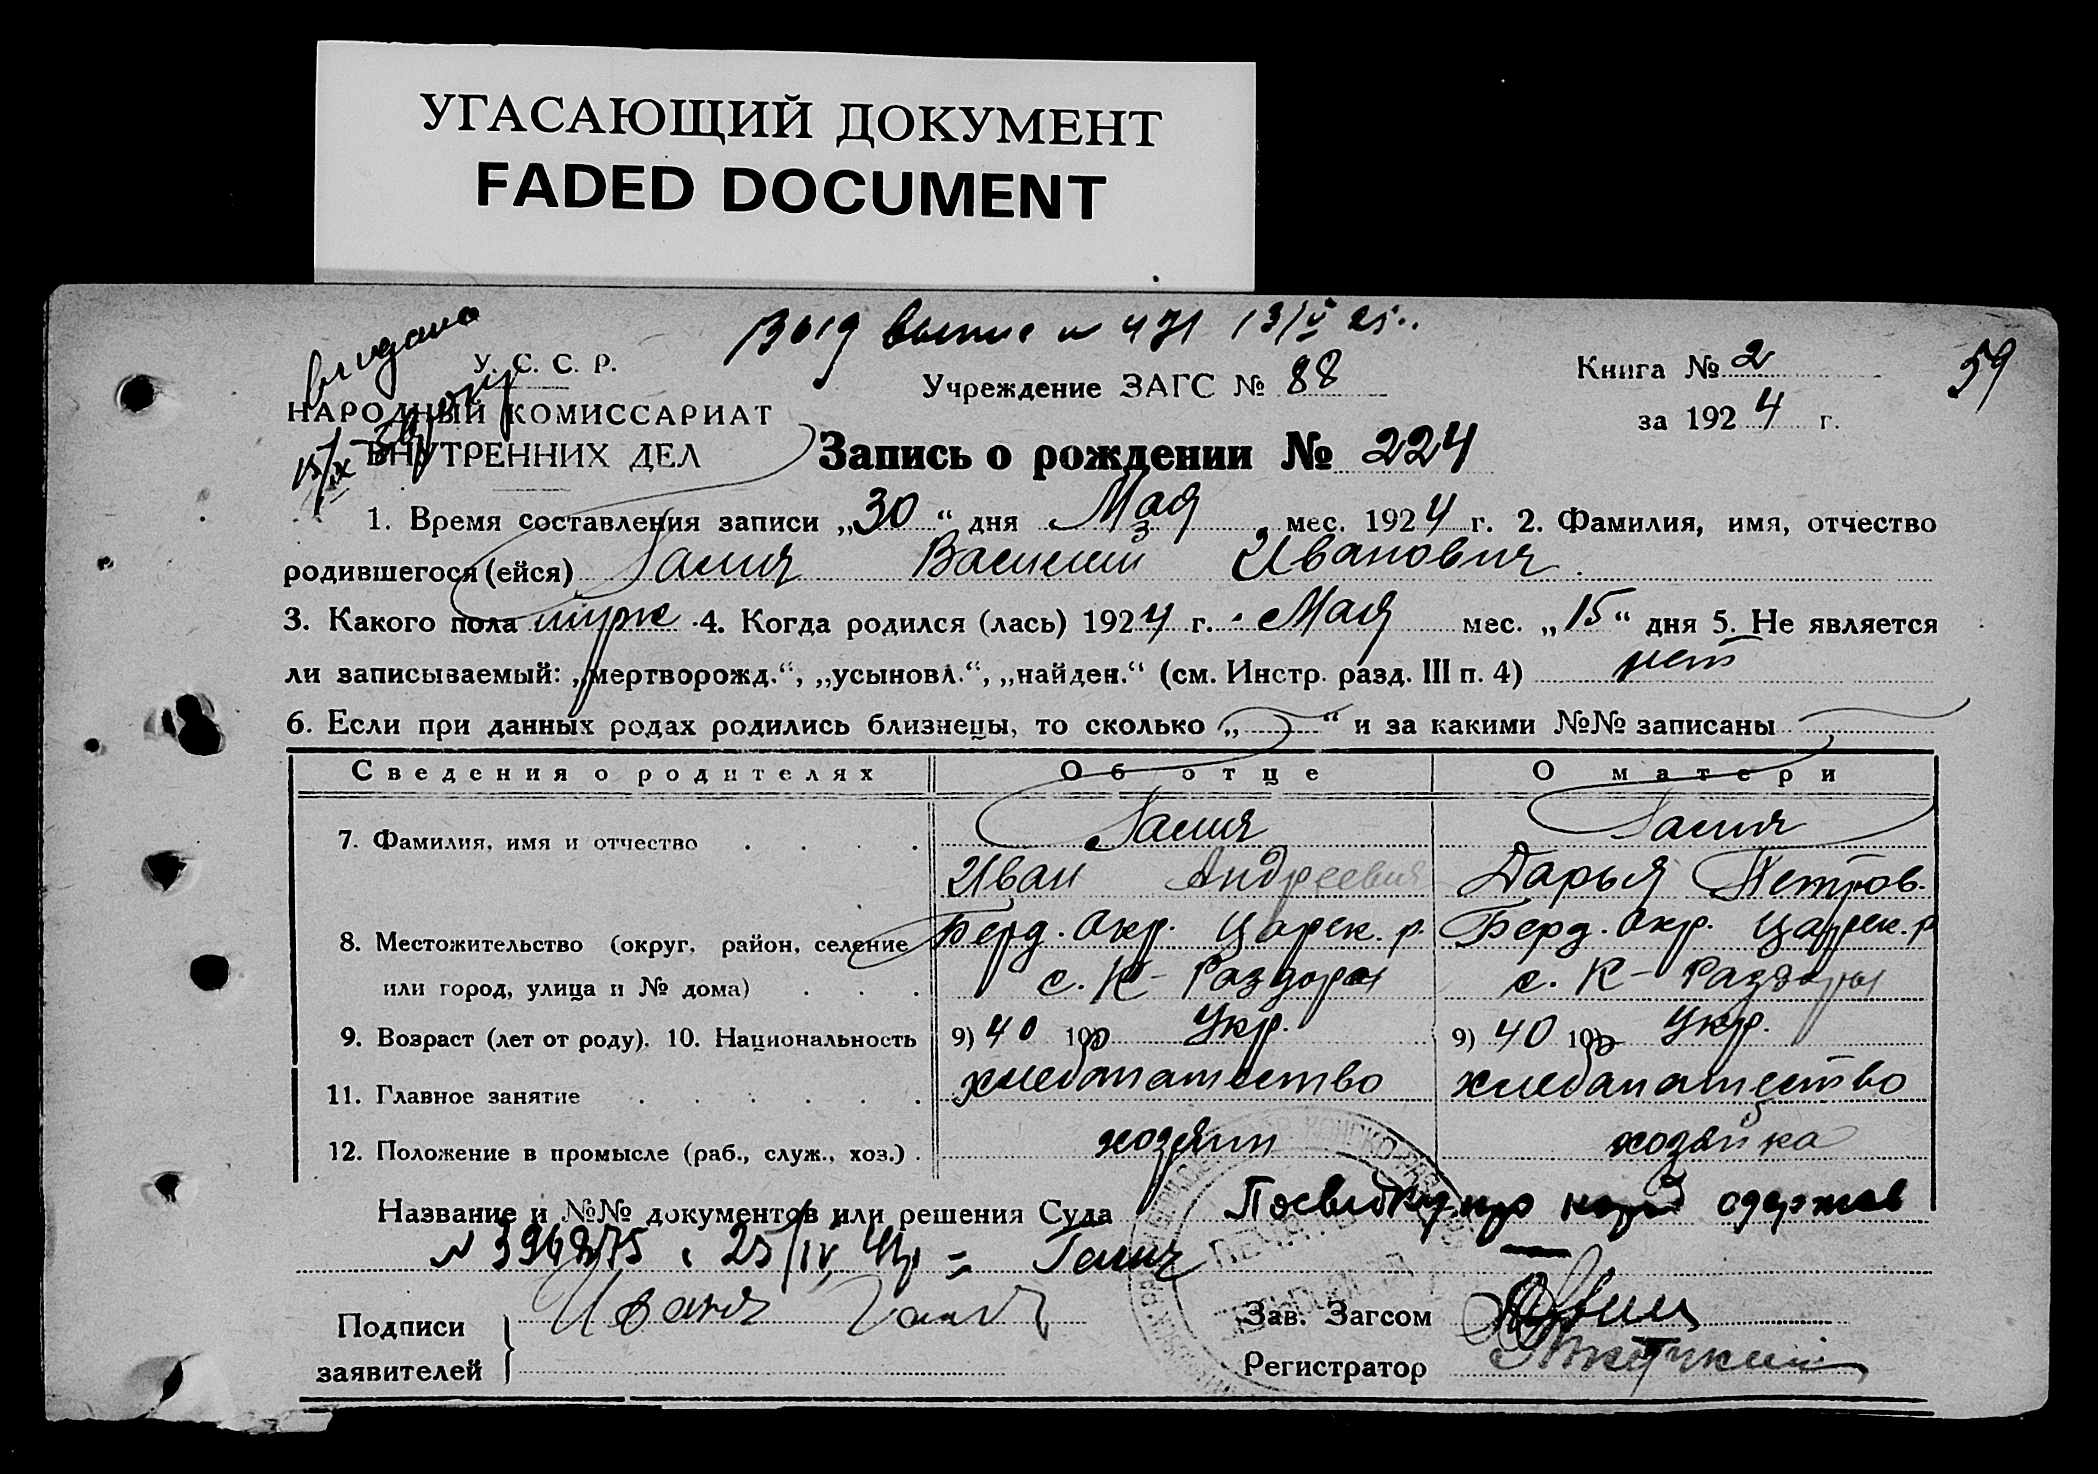 УГАСАЮЩИЙ ДОКУМЕНТ
FADED DOCUMENT
выдана
У. С. С. Р.
НАРОДНЫЙ КОМИССАРИАТ
ВНУТРЕННИХ ДЕЛ
Учреждение ЗАГС № 88
Книга № 2
59
за 1924 г.
Запись о рождении № 224
1. Время составления записи „30“ дня Мая мес. 1924 г. 2. Фамилия, имя, отчество
родившегося (ейся) Галич Василий Иванович
3. Какого пола муж 4. Когда родился (лась) 1924 г. Мая мес. „15“ дня 5. Не является
ли записываемый: „мертворожд.“, „усыновл.“, „найден.“ (см. Инстр. разд. III п. 4) нет
6. Если при данных родах родились близнецы, то сколько „ “ и за какими №№ записаны
Сведения о родителях Об отце О матери
7. Фамилия, имя и отчество Галич Галич
Иван Андреевич Дарья Петров.
8. Местожительство (округ, район, селение Берд. Окр. Царек. р. Берд. Окр. Царек. р
или город, улица и № дома) с. К-Раздоры с. К-Раздоры
9. Возраст (лет от роду). 10. Национальность 9) 40 10) Укр. 9) 40 10) Укр.
11. Главное занятие хлебопашество хлебопашество
12. Положение в промысле (раб., служ., хоз.) хозяин хозяйка
Название и №№ документов или решения Суда
Галич
Подписи заявителей Иван Галич
Зав. Загсом
Регистратор